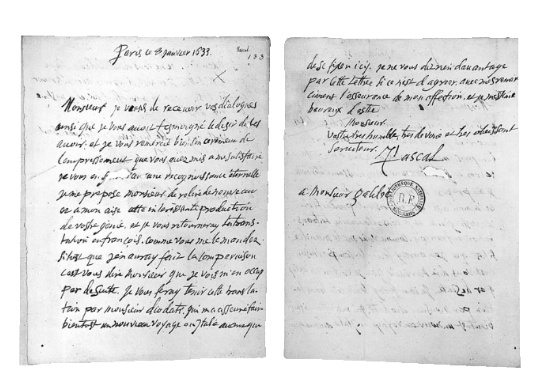 Paris ce 2 janvier 1633
Monsieur je viens de recevoir vos dialogues
ainsi que je vous avois tesmoigné le desir de les
avoir, et je vous remercie bien
l'empressement que vous avez mis a me satisfaire
je vous en une recognoissance eternelle
je me propose monsieur de relire de nouveau
et a mon aise cette interessante production
de vostre genie, et je vous retourneray
en françois, comme vous me le mandez
sitost que j'en auray fini la comparaison
c'est vous dire monsieur que je vois m'en occup
par de suite. Je vous feray tenir cette trans la-
tion par monsieur diodati, qui m'a assuré faire
bientost un nouveau voyage en Italie
je ne vous diray rien davantage
par cette lettre si ce n'est d'agreer
l'assurance de mon affection, et je
heureux d'estre
Monsieur
Vostre tres humble, tres devoué et tres obeissant
serviteur.
Pascal
a Monsieur galilée
B.F.